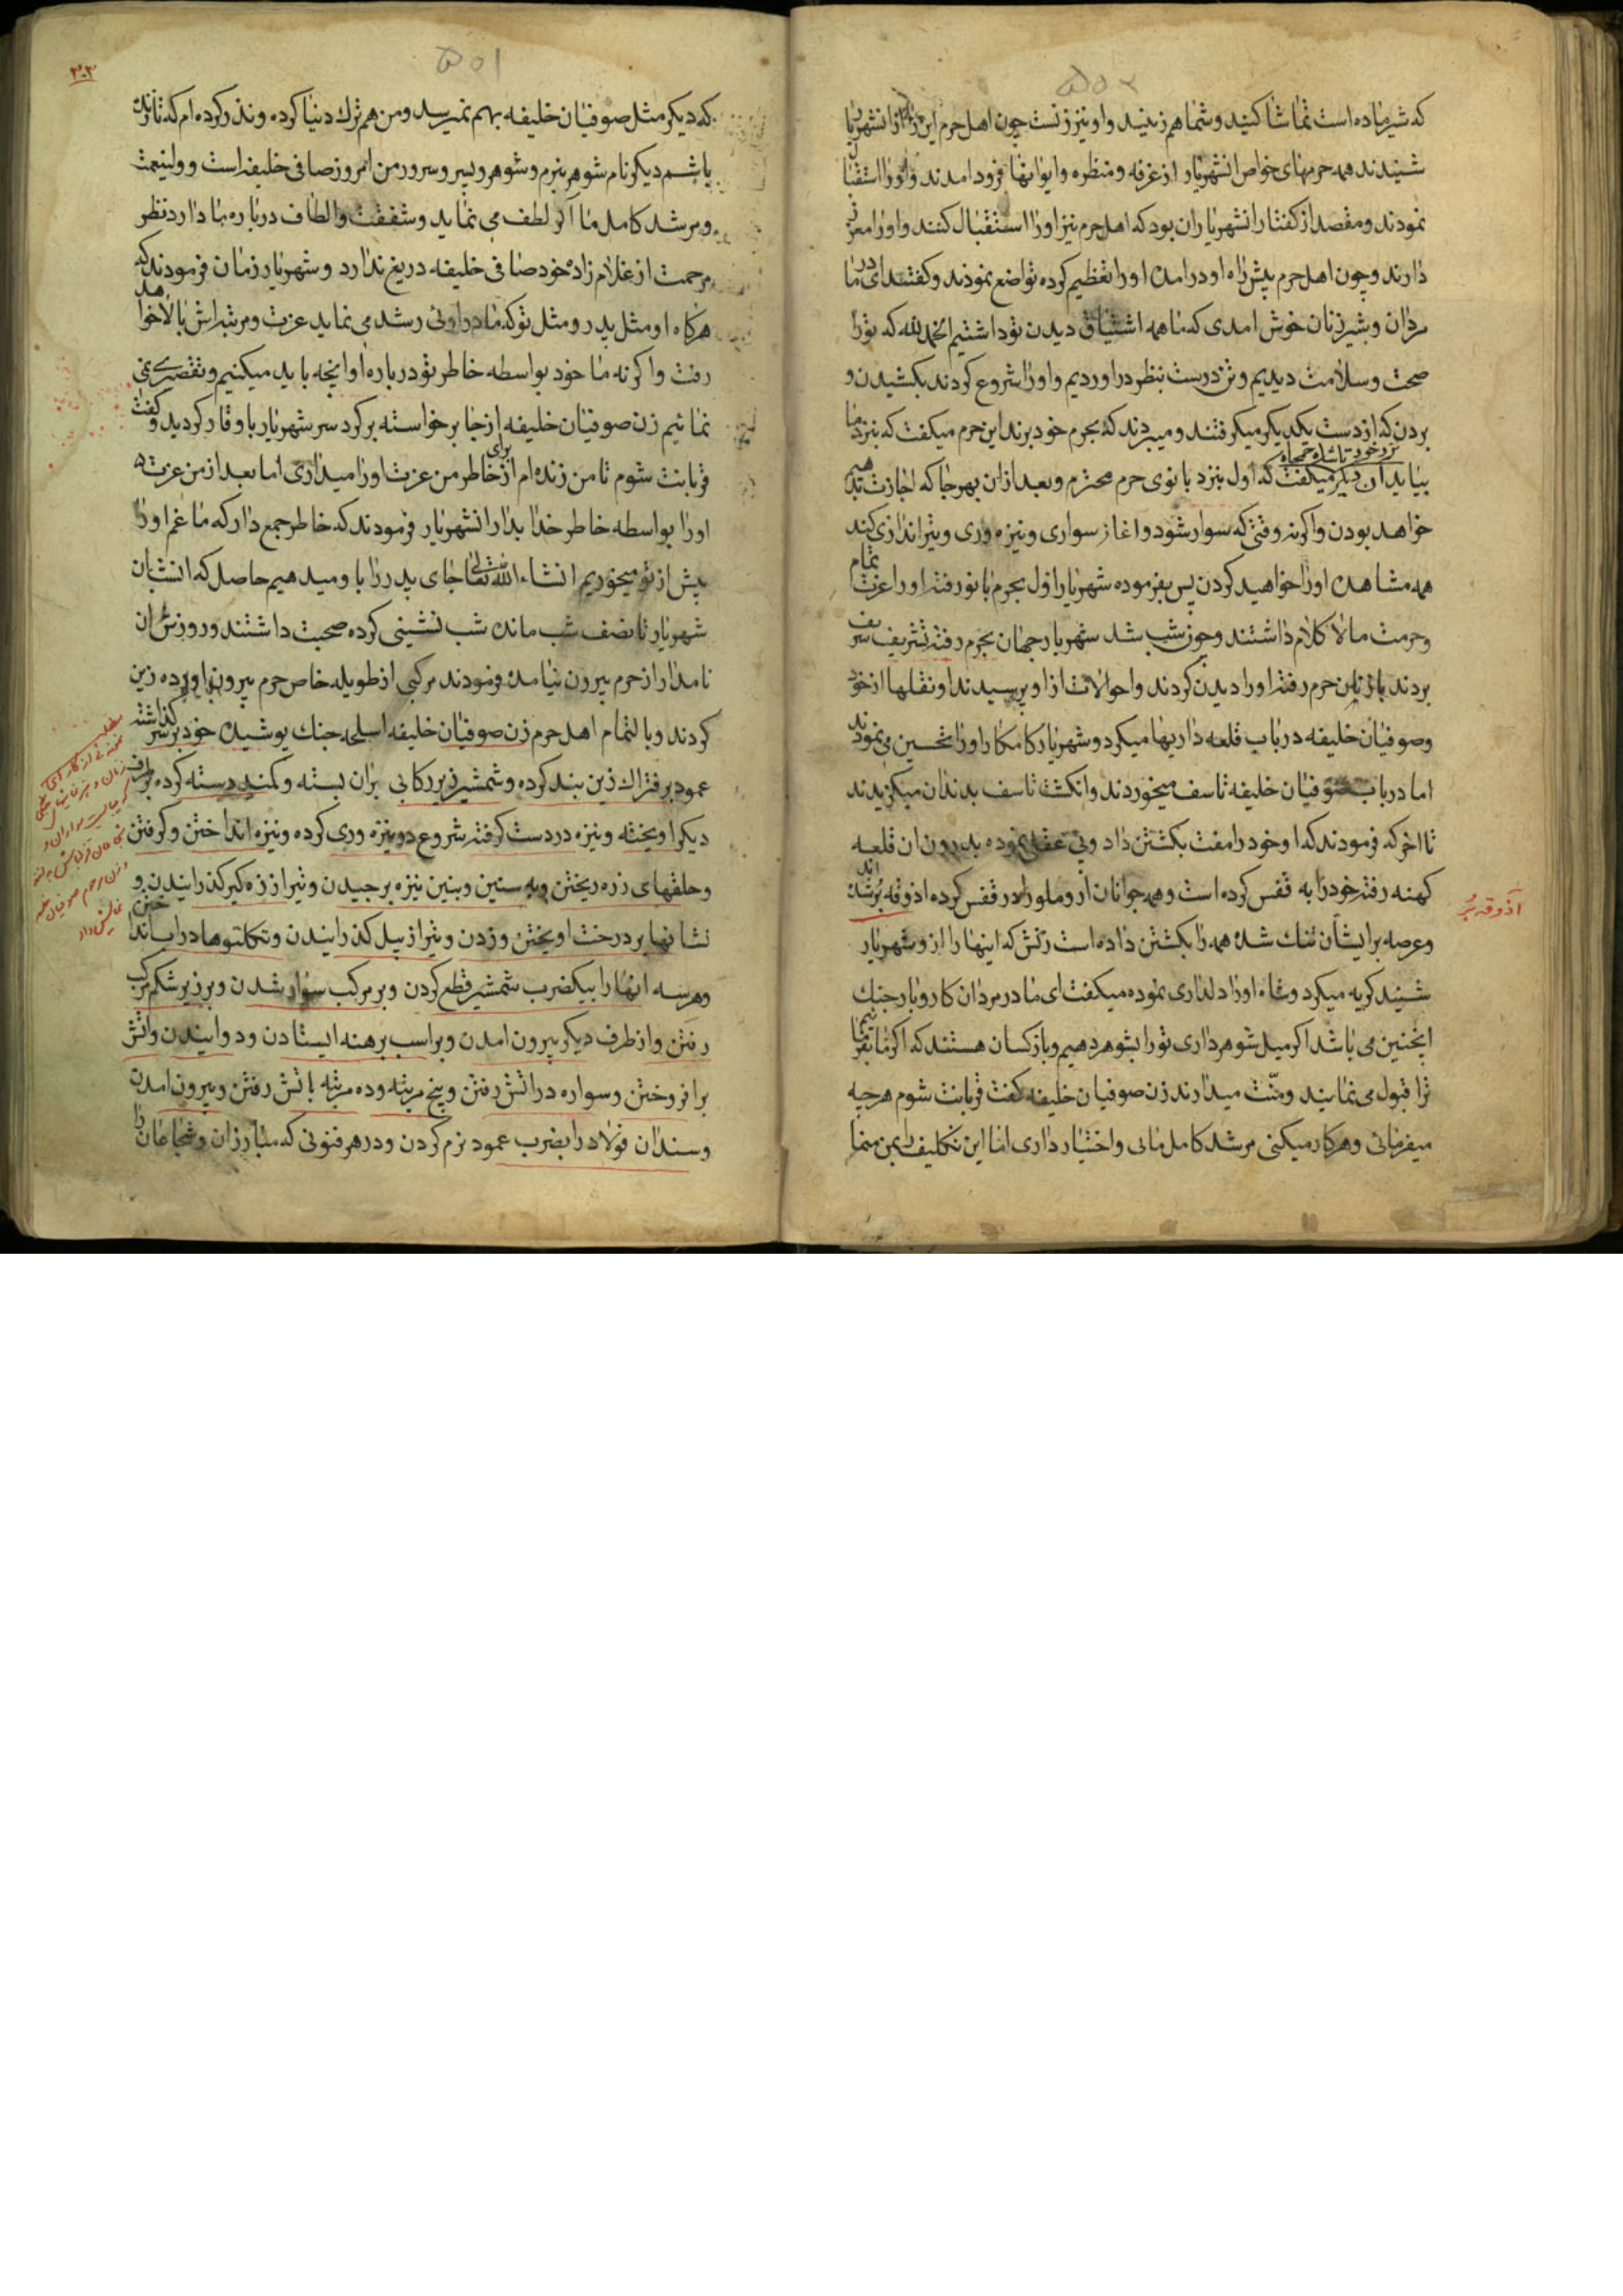 که شیر ماده است تماشا کنید و شما هم زنید و او نیز زنست چون اهل حرم این را از انشهریار
شنیدند همه حرمهای خواص انشهریار از غرفه و منظره و ایوانها فرود امدند و اورا استقبال
نمودند و مقصد از کفتار انشهریاران بود که اهل حرم نیز اورا استقبال کنند و اورا معزز
دارند و چون اهل حرم پیش راه او درامدن اورا تعظیم کرده تواضع نمودند و کفتند ای مادر
مردان و شیر زنان خوش امدی که ما همه اشتیاق دیدن تو داشتیم الحمد لله که تورا
صحت و سلامت دیدیم و تن درست بنظر دراوردیم و اورا شروع کردند بکشیدن و
بردن که از دست یکدیکر میکرفتند و میبردند که بحرم خود برند این حرم میکفت که بنزد ما
بیاید ان دیکر میکفت که اول بنزد بانوی حرم محترم و بعد ازان بهر جا که اجازت
خواهد بودن واکرنه وقتی که سوار شود و اغاز سواری و نیزه وری و تیر اندازی کند
همه مشاهده اورا خواهید کردن پس بفرموده شهریار اول بحرم بانو رفته اورا عزت تمام
و حرمت مالاکلام داشتند و چون شب شد شهریار جهان بحرم رفته تشریف شریف
بردند باز باین حرم رفته اورا دیدن کردند و احوالات ازاو پرسیدند او نقلها از خود
و صوفیان خلیفه در باب قلعه داریها میکرد و شهریار کامکار اورا تحسین می نمودند
اما در باب صوفیان خلیفه تاسف میخوردند و انکشت تاسف بدندان میکزیدند
تا اخر که فرمودند که او خود را مفت بکشتن داد و بی عقلی نموده بدرون ان قلعه
کهنه رفته خودرا به قفس کرده است و همه جوانان ازوملو را در قفس کرده اذوقه بر شده اند
و عرصه بر ایشان تنک شده همه را بکشتن داده است زنش که اینها را از و شهریار
شنید کریه میکرد و شاه اورا دلداری نموده میکفت ای مادر مردان کار و بار جنک
اینچنین می باشد اکر میل شوهر داری تورا بشوهر دهیم و باز کسان هستند که اکر ما بفرمائیم
ترا قبول می نمایند و منت میدارند زن صوفیان خلیفه کفت قربانت شوم هر چه
میفرمائی و هر کار میکنی مرشد کامل مائی و اختیار داری اما این تکلیف را بمن منما
آذوقه بُر
۵۰۲
۵۰۱
۳۰۳
که دیکر مثل صوفیان خلیفه بهم نمیرسد و من هم ترک دنیا کرده و نذر کرده ام که تا زنده
باشم دیکر نام شوهر نبرم و شوهر و پسر و سرور من امروز صافی خلیفه است و ولینعمت
و مرشد کامل ما اکر لطف می نماید و شفقت و الطاف درباره ما دارد نظر
مرحمت از غلام زاده خود صافی خلیفه دریغ ندارد و شهریار زمان فرمودند که
هرکاه او مثل پدر و مثل تو که مادر اوئی رشد می نماید عزت و مرتبه اش بالا خواهد
رفت و اکر نه ما خود بواسطه خاطر تو درباره او انچه باید میکنیم و تقصیری نمی
نمائیم زن صوفیان خلیفه ازجا برخواسته بر کرد سر شهریار با وقار کردید و کفت
قربانت شوم تا من زنده ام از برای خاطر من عزت اورا میداری اما بعد از من عزت
اورا بواسطه خاطر خدا بدار انشهریار فرمودند که خاطر جمع دار که ما غم اورا
پیش از تو میخوریم انشاء الله تعالی جای پدر را باو میدهیم حاصل که انشب ان
شهریار تا نصف شب مانده شب نشینی کرده صحبت داشتند و روزش ان
نامدار از حرم بیرون نیامده فرمودند مرکبی از طویله خاص حرم بیرون اورده زین
کردند و بالتمام اهل حرم زن صوفیان خلیفه اسلحه جنک پوشیده خود بر سر کذاشته
عمود بر فتراک زین بند کرده و شمشیر زیر رکابی بران بسته و کمند دسته کرده بر طرف
دیکر اویخته و نیزه در دست کرفته شروع در نیزه وری کرده و نیزه انداختن و کرفتن
و حلقهای زره ریختن و به سنین و بنین نیزه برچیدن و تیر از زه کیر کذرانیدن و
نشانها بر درخت اویختن و زدن و تیر از بیل کذرانیدن و تکلتوها دراب انداختن
و هر سه انها را بیکضرب شمشیر قطع کردن و بر مرکب سوار شدن و بر زیر شکم مرکب
رفتن و از طرف دیکر بیرون امدن و بر اسب برهنه ایستادن و دوانیدن و اتش
برافروختن و سواره در اتش رفتن و پنج مرتبه و ده مرتبه باتش رفتن و بیرون امدن
و سندان فولاد را بضرب عمود نرم کردن و در هر فنونی که مبارزان و شجاعان را